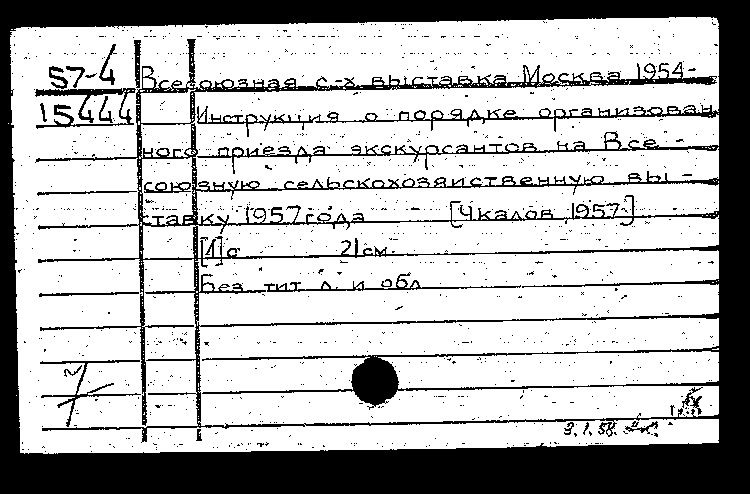 57-4 Всесоюзная с-х выставка Москва 1954-
15444 Инструкция о порядке организован
ного приезда экскурсантов на Все-
союзную сельскохозяйственную вы-
ставку 1957 года [Чкалов, 1957]
[1] с 21 см.
Без тит л. и обл
3.1.58.